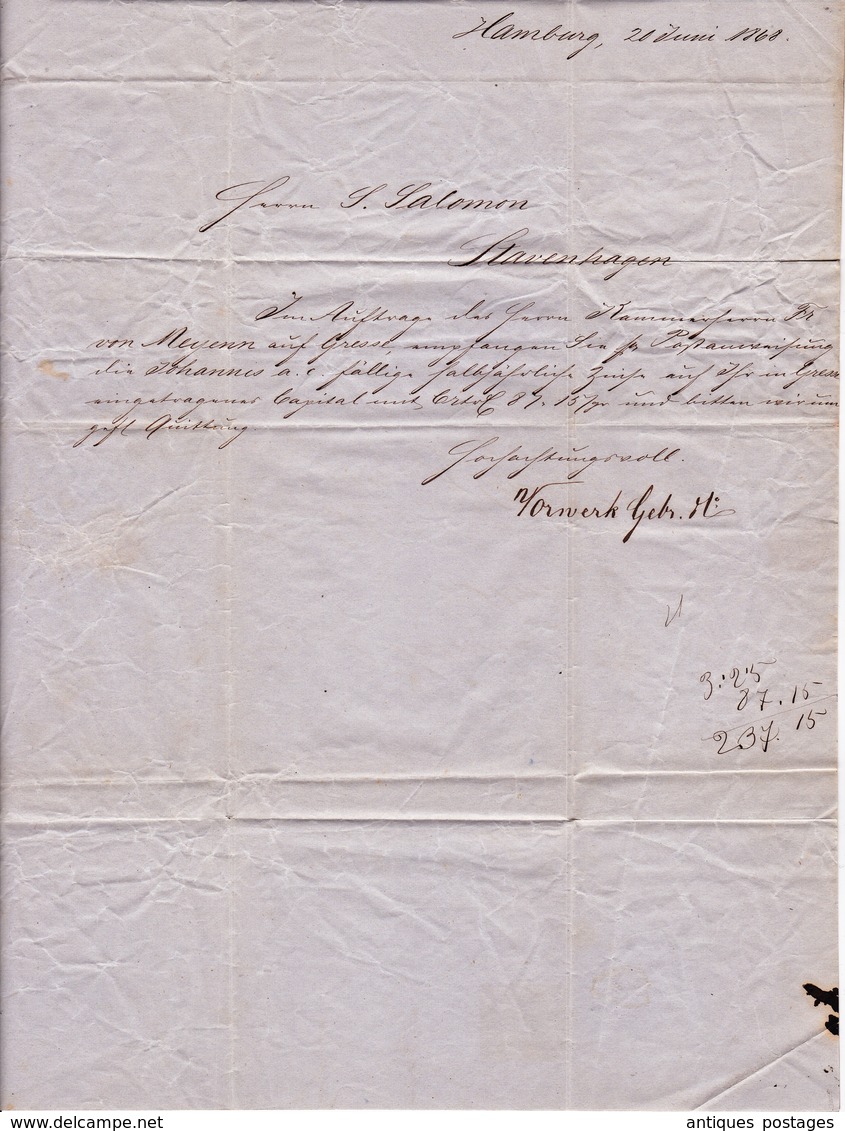 Hamburg, 20 Juni 1868.
Herrn S. Salomon
Stavenhagen
Im Auftrage des Herrn Kammerherrn Fr
von Meyenn auf Gresse, empfangen Sie pr Postanweisung
die Johannis a. c. fällige halbjährliche Zinse auf Ihr in Gresse
eingetragenes Capital mit 87. 15 sgr und bitten wir um
gefl Quittung.
Hochachtungsvoll.
Vorwerk Gebr. & Co
3:25
87.15
237. 15
antiques postages